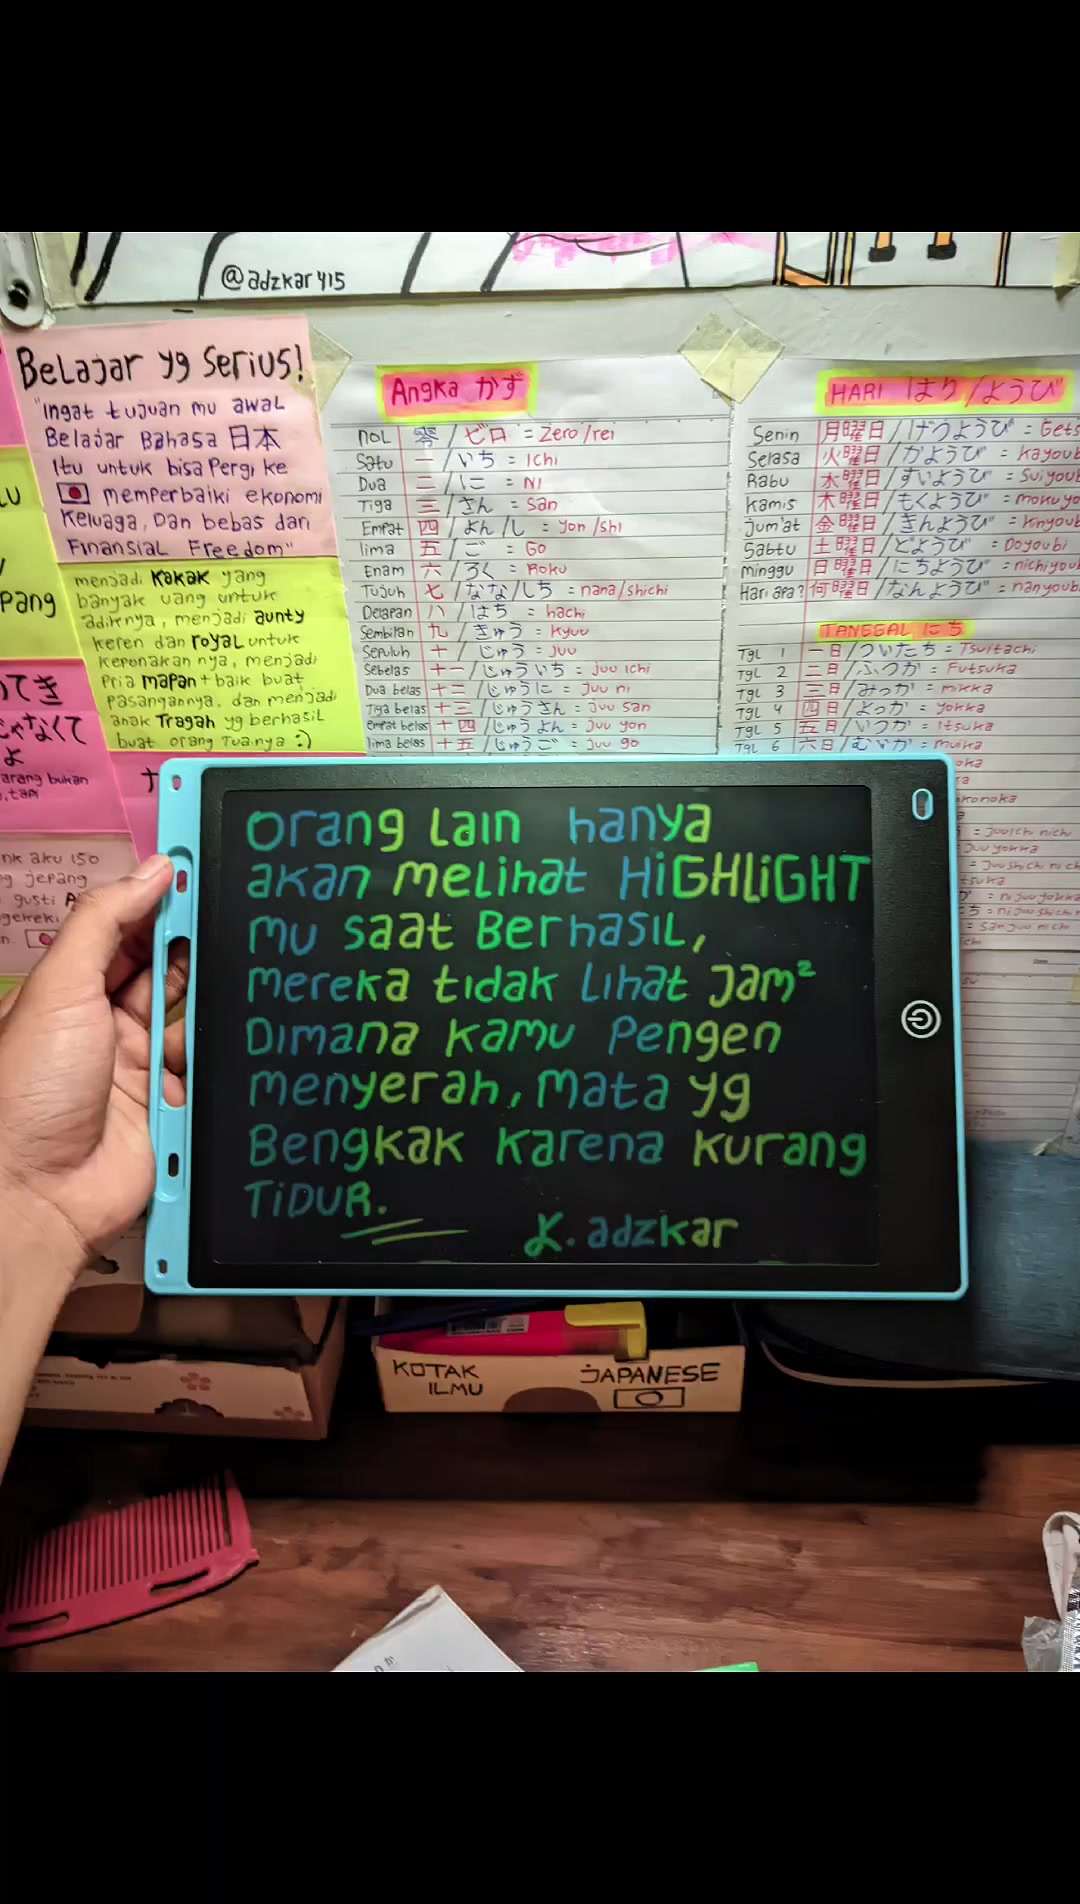 @adzkar415
Belajar yg Serius!
"Ingat tujuan mu awal
Belajar Bahasa 日本
Itu untuk bisa Pergi ke
memperbaiki ekonomi
Keluaga, Dan bebas dari
Finansial Freedom"
menjadi Kakak yang
banyak uang untuk
adiknya, menjadi aunty
keren dan royal untuk
keponakan nya, menjadi
Pria mapan + baik buat
pasangannya, dan menjadi
anak Tragah yg berhasil
buat orang Tuanya :)
pang
じゃなくて
よ
arang bukan
, tapi
nk aku 150
g jepang
gusti
Angka かず
NOL 零 / ゼロ = Zero/rei
Satu 一 / いち = Ichi
Dua 二 / に = Ni
Tiga 三 / さん = San
Empat 四 / よん/し = yon/shi
lima 五 / ご = Go
Enam 六 / ろく = Roku
Tujuh 七 / なな/しち = nana/shichi
Delapan 八 / はち = hachi
Sembilan 九 / きゅう = kyuu
Sepuluh 十 / じゅう = juu
Sebelas 十一 / じゅういち = juu ichi
Dua belas 十二 / じゅうに = juu ni
Tiga belas 十三 / じゅうさん = juu san
Empat belas 十四 / じゅうよん = juu yon
lima belas 十五 / じゅうご = juu go
HARI はり/ようび
Senin 月曜日 / げつようび = Gets
Selasa 火曜日 / かようび = kayoub
Rabu 水曜日 / すいようび = Suiyou
Kamis 木曜日 / もくようび = mokuyo
Jum'at 金曜日 / きんようび = Kinyou
Sabtu 土曜日 / どようび = Doyoubi
minggu 日曜日 / にちようび = nichiyou
Hari apa? 何曜日 / なんようび = nanyoub
TANGGAL にち
Tgl 1 一日 / ついたち = Tsuitachi
Tgl 2 二日 / ふつか = Futsuka
Tgl 3 三日 / みっか = mikka
Tgl 4 四日 / よっか = yokka
Tgl 5 五日 / いつか = Itsuka
Tgl 6 六日 / むいか = muika
oka
okonoka
= juuichi nichi
juu yokka
= juushichi nich
tsuka
= nijuu yokka
= nijuu shichi n
= Sanjuu nichi
orang Lain hanya
akan melihat HiGHLiGHT
mu saat Berhasil,
mereka tidak Lihat Jam²
Dimana kamu Pengen
menyerah, mata yg
Bengkak karena kurang
TiDUR.
K. adzkar
KOTAK
ILMU
JAPANESE